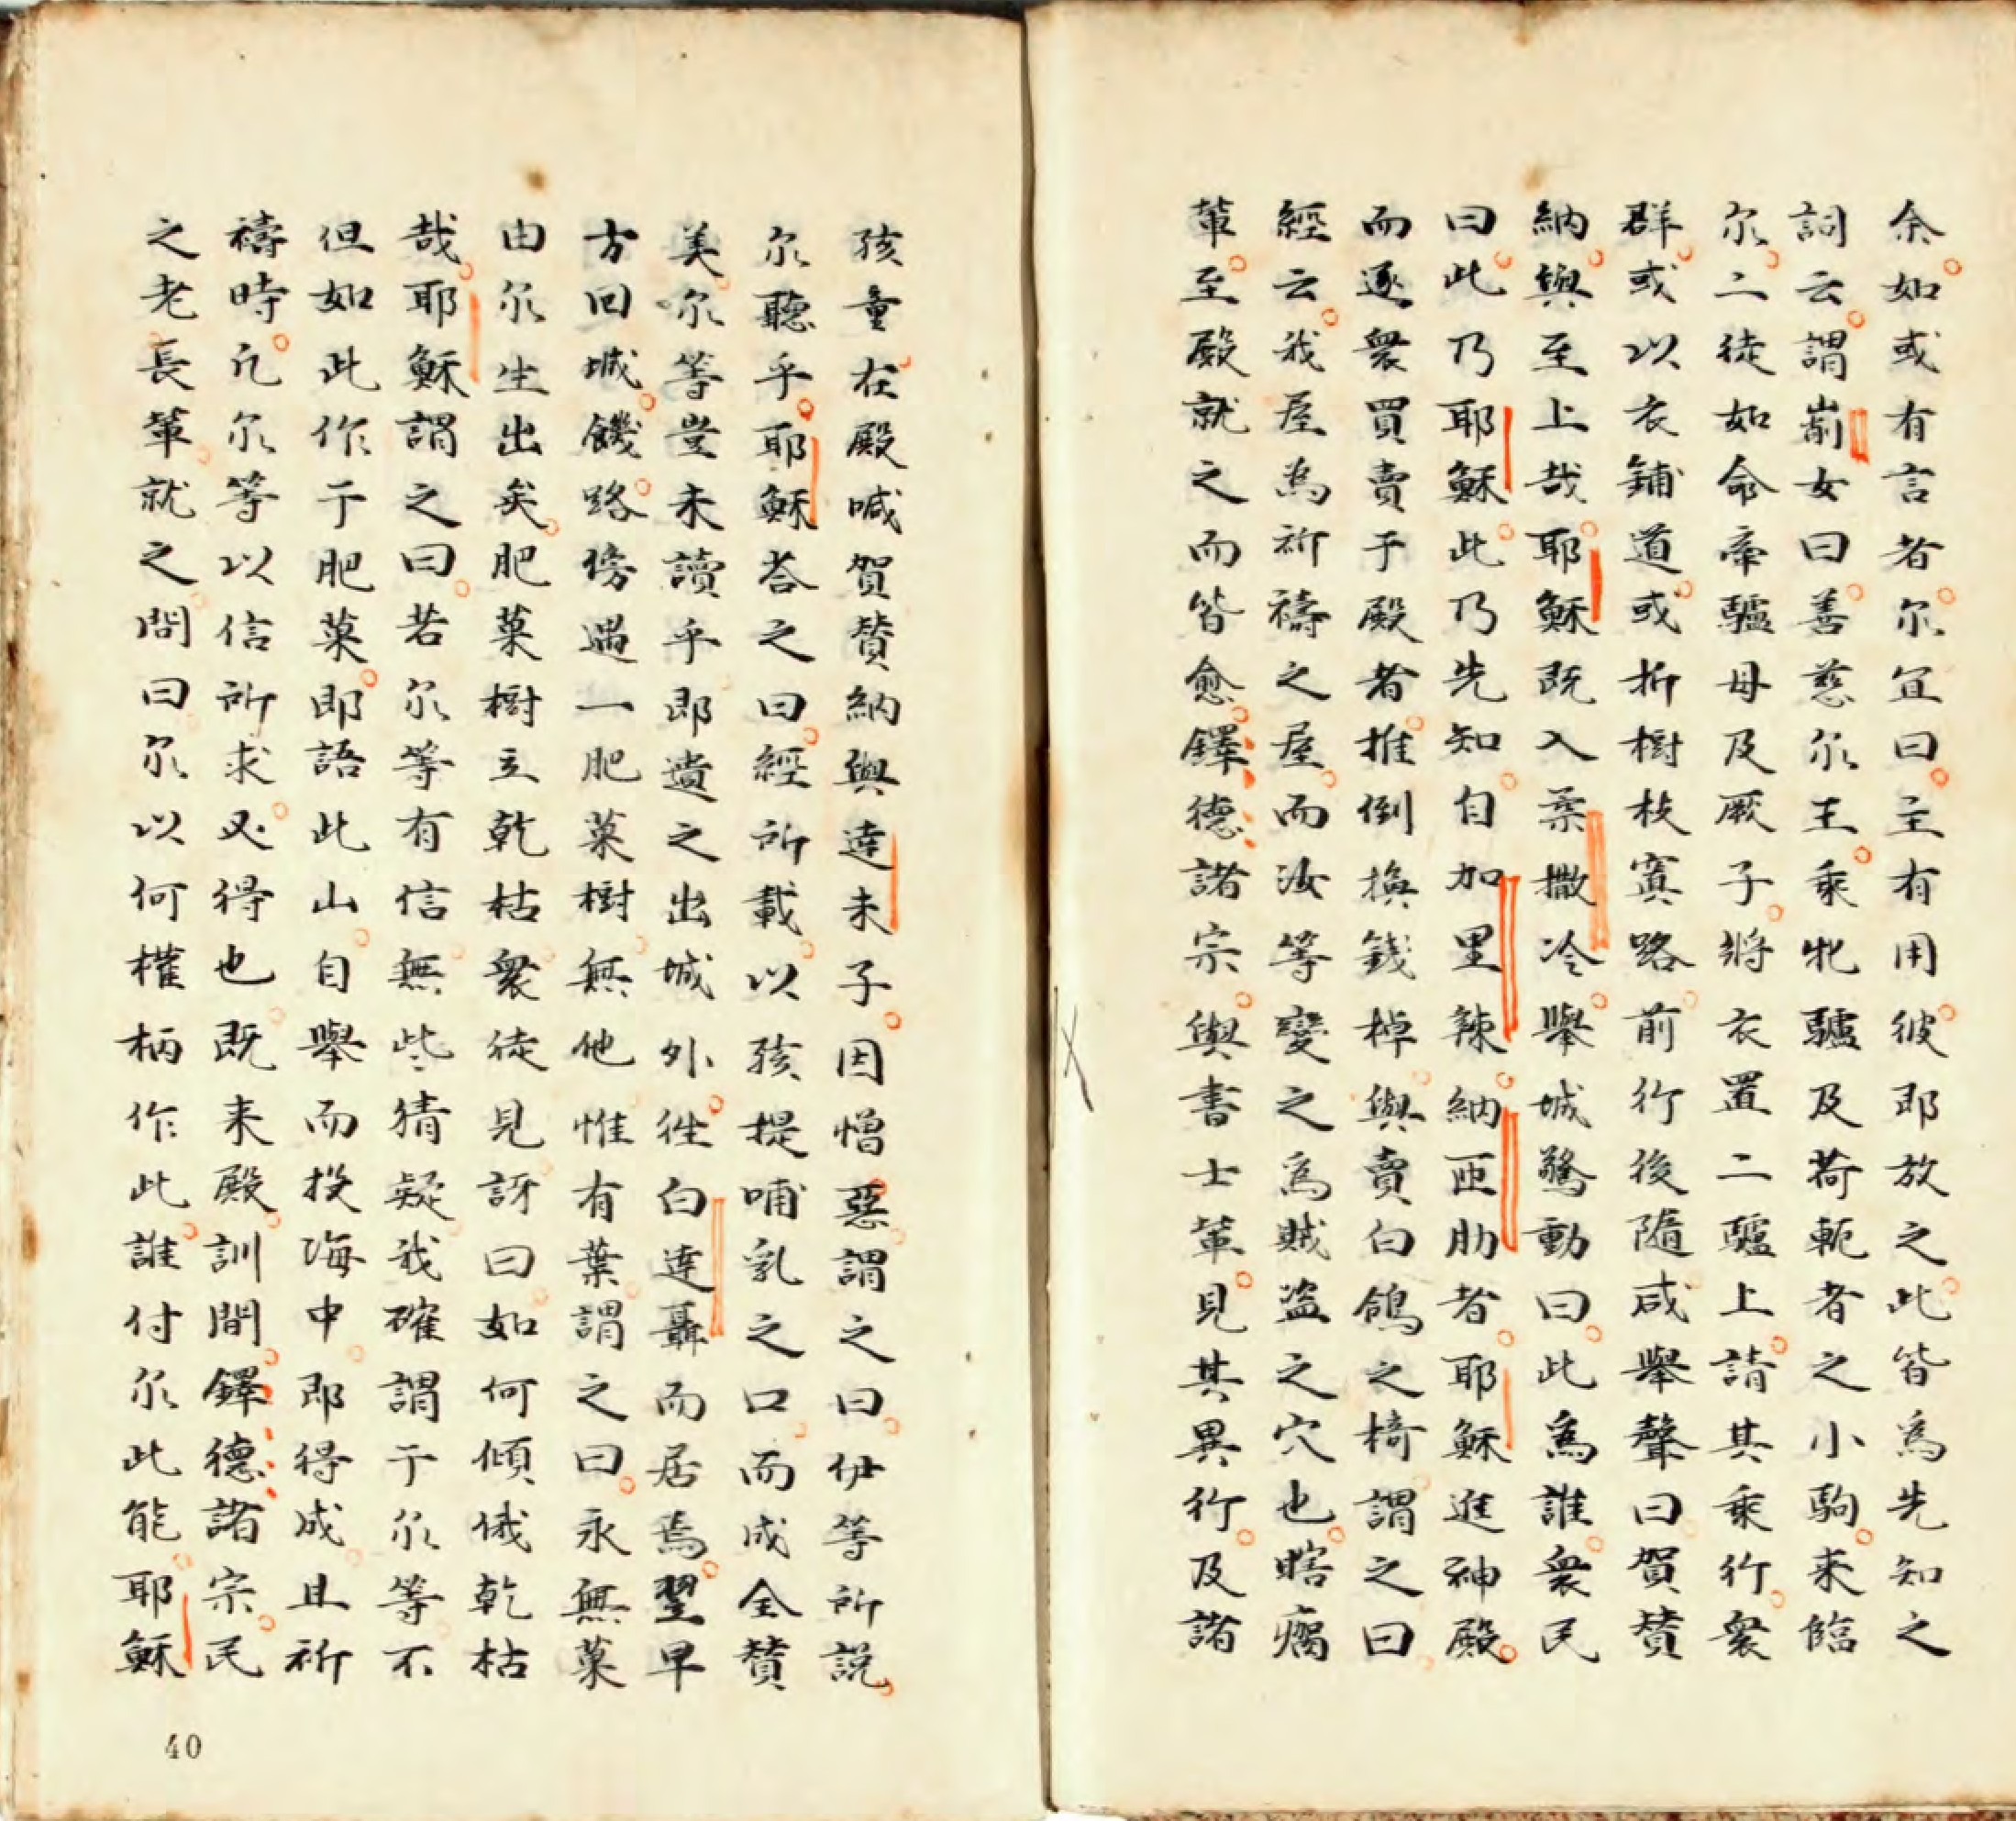 余如或有言者尔宜曰主有用彼即放之此皆為先知之
詞云謂崙女曰善慈尔王乘牝驢及荷軛者之小駒来臨
尔二徒如命牽驢母及厥子將衣置二驢上請其乘行衆
群或以衣鋪道或折樹枝寘路前行後隨咸舉聲曰賀賛
納與至上哉耶穌既入柔撒冷舉城驚動曰此為誰衆民
曰此乃耶穌此乃先知自加里辣納匝肋者耶穌進神殿
而逐衆買賣于殿者推倒換錢棹與賣白鴿之椅謂之曰
經云我屋為祈禱之屋而汝等變之為賊盗之穴也瞎瘸
輩至殿就之而皆愈鐸德諸宗與書士輩見其異行及諸
孩童在殿喊賀賛納與達未子因憎惡謂之曰伊等所説
尔聽乎耶穌荅之曰經所載以孩提哺乳之口而成全賛
美尔等豈未讀乎即遺之出城外徃白達聶而居焉翌早
方回城饑路傍遇一肥菓樹無他惟有葉謂之曰永無菓
由尔生出矣肥菓樹立乾枯衆徒見訝曰如何傾俄乾枯
哉耶穌謂之曰若尔等有信無些猜疑我確謂于尔等不
但如此作于肥菓即語此山自舉而投海中即得成且祈
禱時凢尔等以信所求必得也既来殿訓間鐸德諸宗民
之老長輩就之問曰尔以何權柄作此誰付尔此能耶穌
40